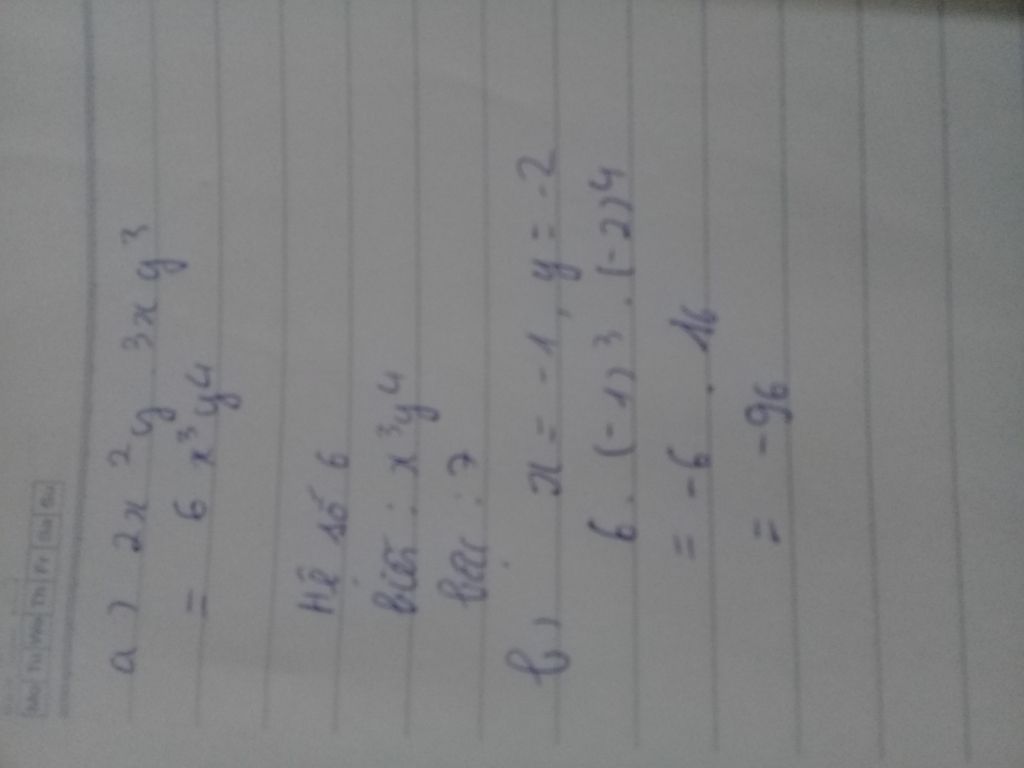 Mo Tu We Th Fr Sa Su
a) 2x²y 3xy³
= 6 x³y⁴
Hệ số 6
biến : x³y⁴
bậc : 7
b) x = -1, y = -2
6. (-1)³. (-2)4
= -6 . 16
= -96